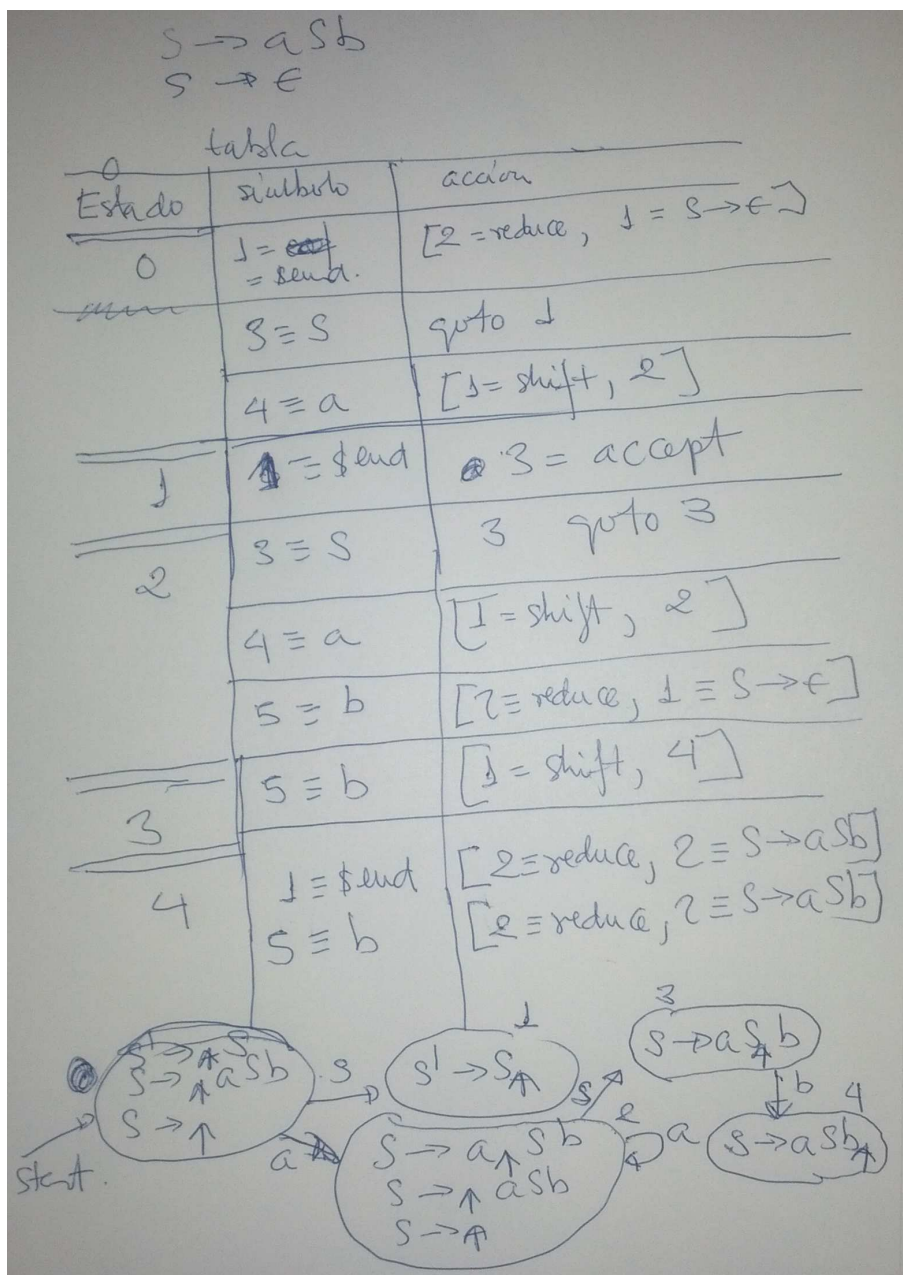 S → aSb
S → ϵ
tabla
Estado símbolo acción
0 1 = = $end. [2 = reduce, 1 = S → ϵ]
3 ≡ S goto 1
4 ≡ a [1 = shift, 2]
1 1 ≡ $end 3 = accept
2 3 ≡ S 3 goto 3
4 ≡ a [1 = shift, 2]
5 ≡ b [2 ≡ reduce, 1 ≡ S → ϵ]
5 ≡ b [1 = shift, 4]
3
4 1 ≡ $end [2 ≡ reduce, 2 ≡ S → aSb]
5 ≡ b [2 ≡ reduce, 2 ≡ S → aSb]
S' → ↑ S
S → ↑ aSb
S → ↑
start.
S
a
1
S' → S ↑
S
2
S → a ↑ Sb
S → ↑ aSb
S → ↑
a
3
S → aS ↑ b
b
4
S → aSb ↑